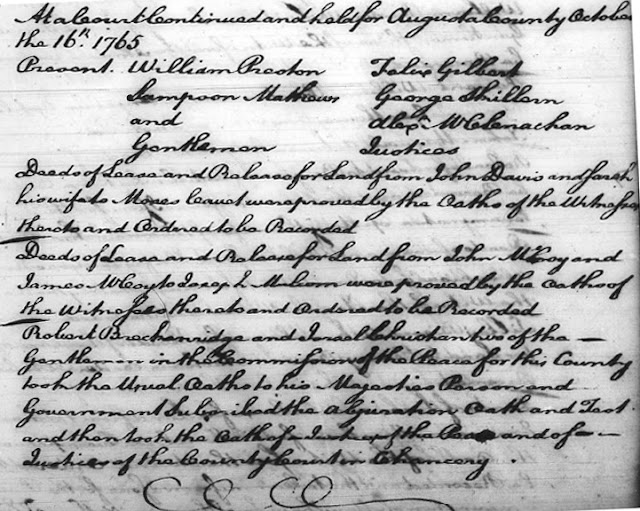 At a Court Continued and held for Augusta County October
the 16th 1765
Present William Preston Felix Gilbert
Sampson Mathews George Skillern
and Alexr McClenachan
Gentlemen Justices
Deeds of Lease and Release for Land from John Davis and Sarah
his wife to Moses were proved by the Oaths of the Witnesses
thereto and Ordered to be Recorded
Deeds of Lease and Release for Land from John McCoy and
James McCoy to Joseph Malcom were proved by the oaths of
the Witnesses thereto and Ordered to be Recorded
Robert Breckenridge and Israel Christian two of the
Gentlemen in the Commission of the Peace for this County
took the Usual Oaths to his Majesties Person and
Government Subscribed the abjuration Oath and Test
and then took the Oath of a Justice of the Peace and of
Justices of the County Court in Chancery .